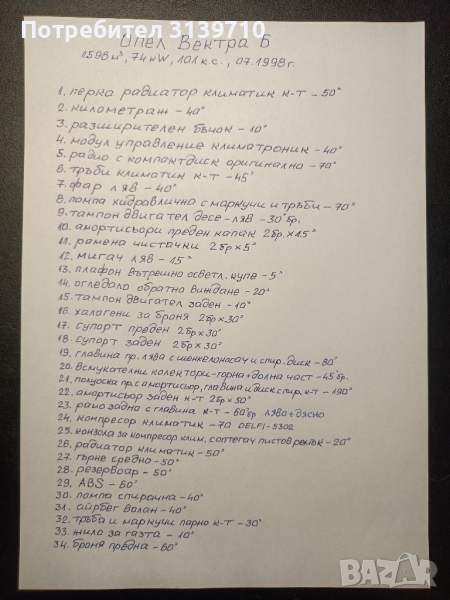 Потребител 3139710
Опел Вектра Б
1598 м³, 74 кW, 101 к.с., 07.1998 г.
1. перка радиатор климатик к-т – 50°
2. километраж – 40°
3. разширителен бъчок – 10°
4. модул управление климатроник – 40°
5. радио с компактдиск оригинално – 70°
6. тръби климатик к-т – 45°
7. фар ляв – 40°
8. помпа хидровлична с маркучи и тръби – 70°
9. тампон двигател десе-ляв – 30° бр.
10. амортисьори преден капак 2бр × 15°
11. рамена чистачки 2бр × 5°
12. мигач ляв – 15°
13. плафон вътрешно осветл. купе – 5°
14. огледало обратно виждане – 20°
15. тампон двигател заден – 10°
16. халогени за броня 2бр × 30°
17. супорт преден 2бр × 30°
18. супорт заден 2бр × 30°
19. главина пр. лява с шенкелоносач и спир. диск – 80°
20. всмукателни колектори-горна+долна част – 45° бр.
21. полуоска пр. с амортисьор, главина и диск спир. к-т – 190°
22. амортисьор заден к-т 2бр × 50°
23. рамо задна с главина к-т – 60° бр лява+дясно
24. компресор климатик – 70 DELFI-5302
25. конзола за компресор клим. с оптегач пистов ремък – 20°
26. радиатор климатик – 50°
27. гърне средно – 50°
28. резервоар – 50°
29. ABS – 60°
30. помпа спирачна – 40°
31. айрбег волан – 40°
32. тръба и маркучи парно к-т – 30°
33. жило за газта – 10°
34. броня предна – 60°
BAZAR